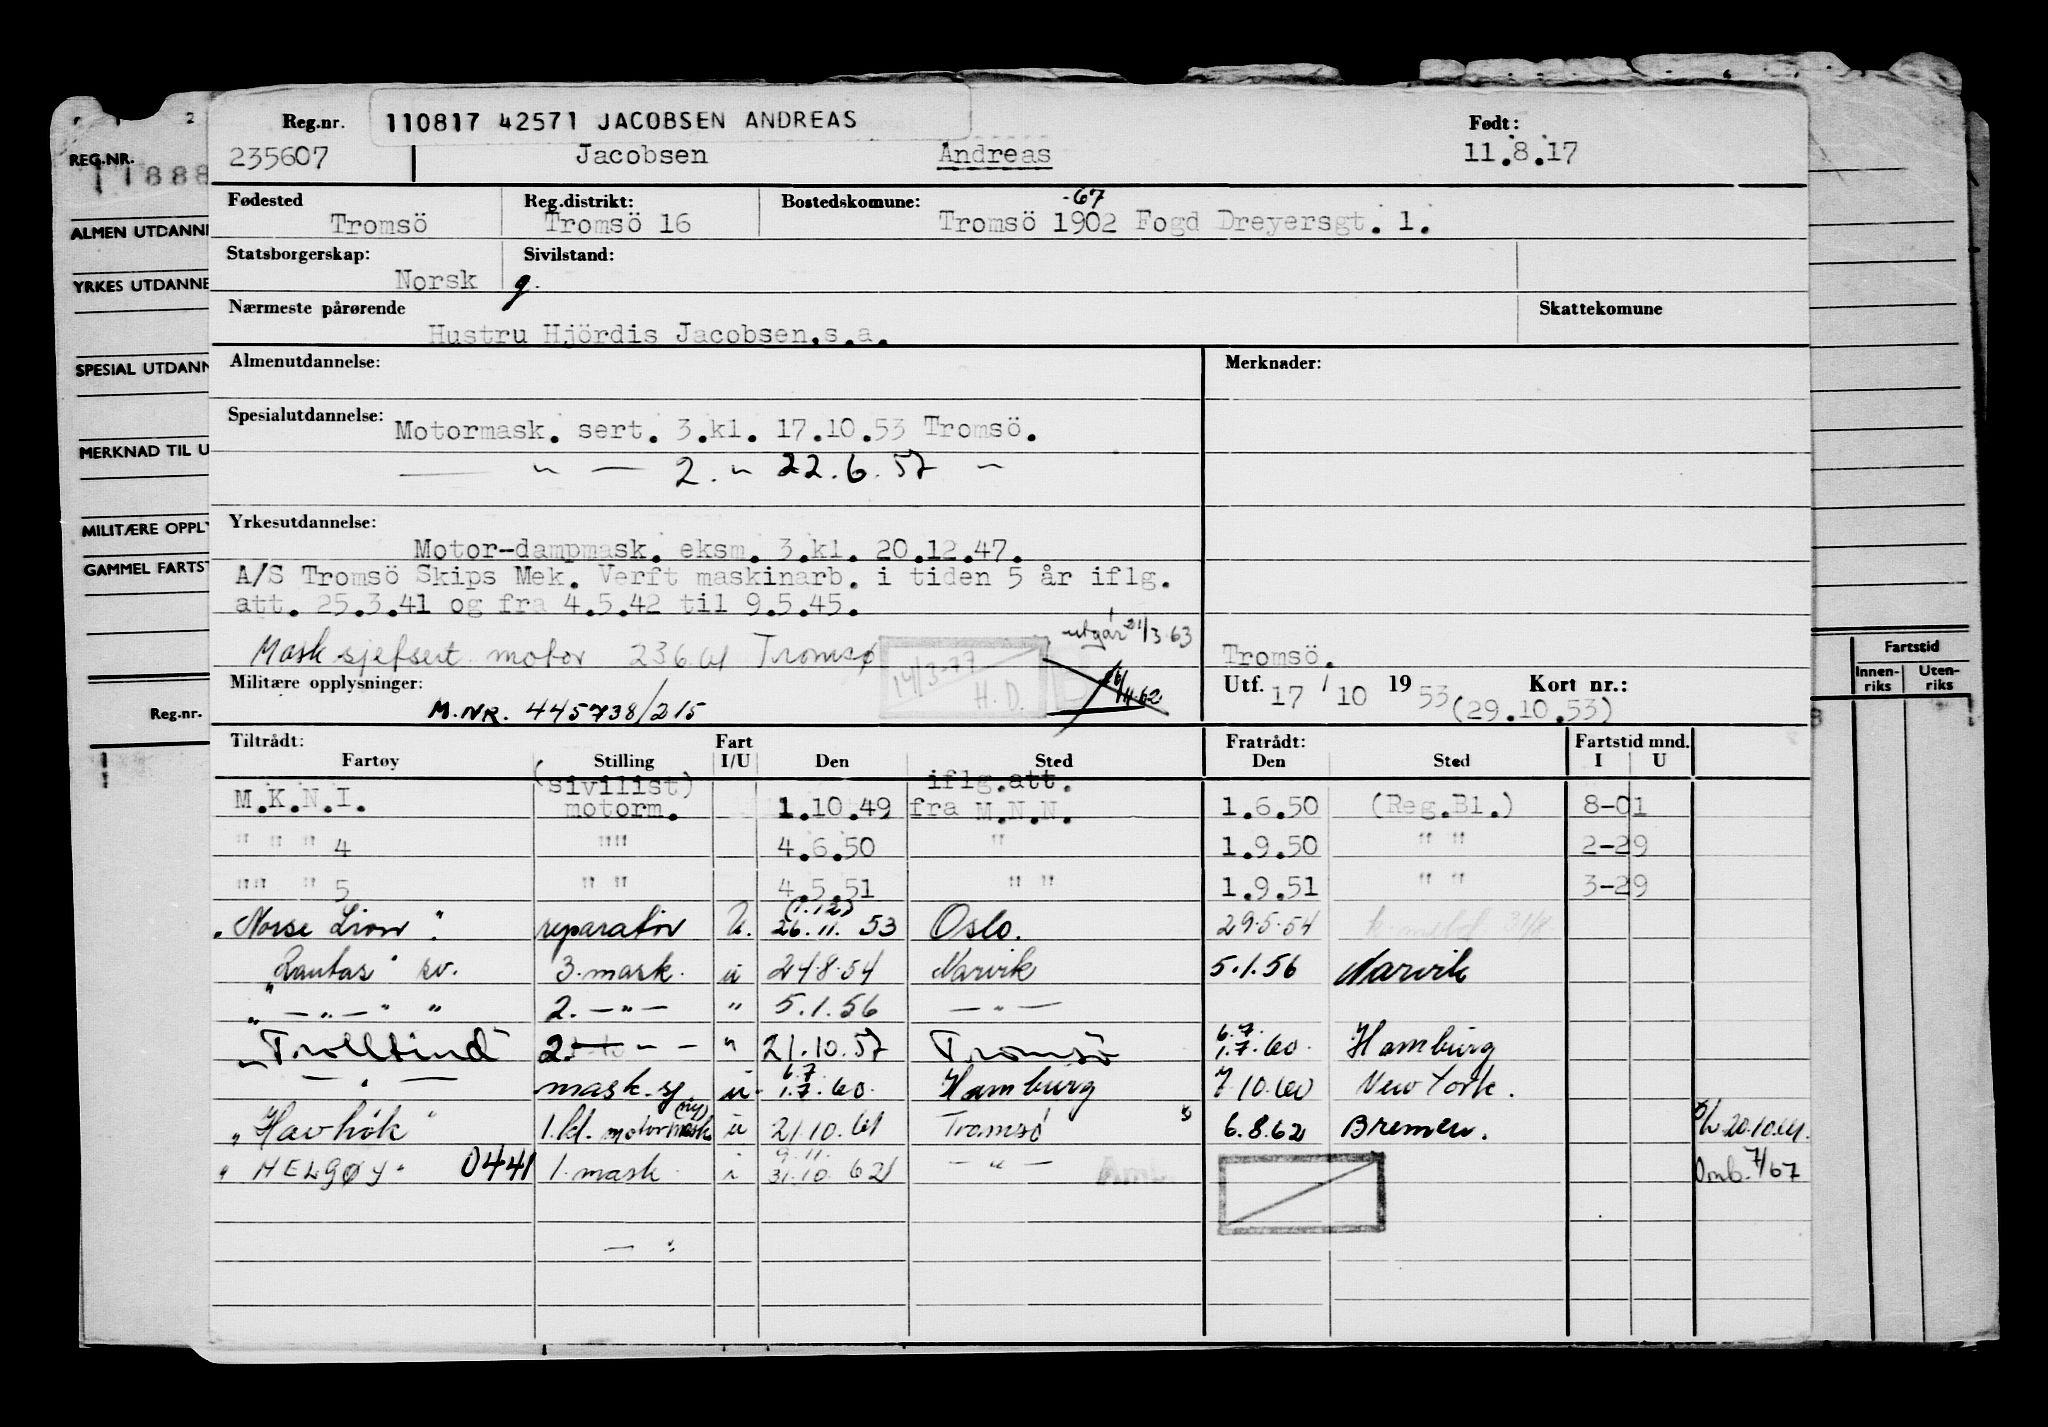 Reg.nr. 110817 42571 JACOBSEN ANDREAS Født:
235607 Jacobsen Andreas 11.8.17
REG.NR.
11888
Fødested Reg.distrikt: Bostedskomune: -67
Tromsö Tromsö 16 Tromsö 1902 Fogd Dreyersgt. 1.
ALMEN UTDANNE
Statsborgerskap: Sivilstand:
Norsk g.
YRKES UTDANNE
Nærmeste pårørende Skattekomune
Hustru Hjördis Jacobsen.s.a.
Almenutdannelse: Merknader:
SPESIAL UTDANN
Spesialutdannelse: Motormask. sert. 3.kl. 17.10.53 Tromsö.
— " — 2. " 22.6.57 —"—
MERKNAD TIL U
Yrkesutdannelse:
MILITÆRE OPPLY
Motor-dampmask. eksm. 3.kl. 20.12.47.
GAMMEL FARTST
A/S Tromsö Skips Mek. Verft maskinarb. i tiden 5 år iflg.
att. 25.3.41 og fra 4.5.42 til 9.5.45.
utgår 21/3.63
Mask sjefsert motor 23.6.61 Tromsø
14/3-77 H.D.
16/11.62
Tromsö.
Militære opplysninger: M.NR. 445738/215
Utf. 17/10 1953 Kort nr.: (29.10.53)
Fartstid
Innenriks Utenriks
Reg.nr.
Tiltrådt: Fart Fratrådt: Fartstid mnd.
Fartøy Stilling I/U Den Sted Den Sted I U
M.K.N.I. (sivilist) motorm. 1.10.49 iflg.att. fra M.N.N. 1.6.50 (Reg.Bl.) 8-01
" " " 4 "" 4.6.50 " 1.9.50 " " 2-29
"" " 5 " " 4.5.51 " " 1.9.51 " " 3-29
"Norse Lion" reparatör U. (1.12) 26.11.53 Oslo. 29.5.54
"Rautas" sv. 3. mask. u 24.8.54 Narvik 5.1.56 Narvik
" — " — " " 2. — " — " 5.1.56 — " —
"Trolltind" 2. — " — " 21.10.57 Tromsö 6.7. 1.7.60. Hamburg
— " — mask.sj u. 6.7 1.7.60. Hamburg 7.10.60 New York.
"Havhök" 1.kl. motormask u 21.10.61 Tromsö 6.8.62 Bremen. 20.10.61.
"HELGØY" 0441 1. mask. i 9.11. 31.10.62 — " — Omb. 7/67
— "